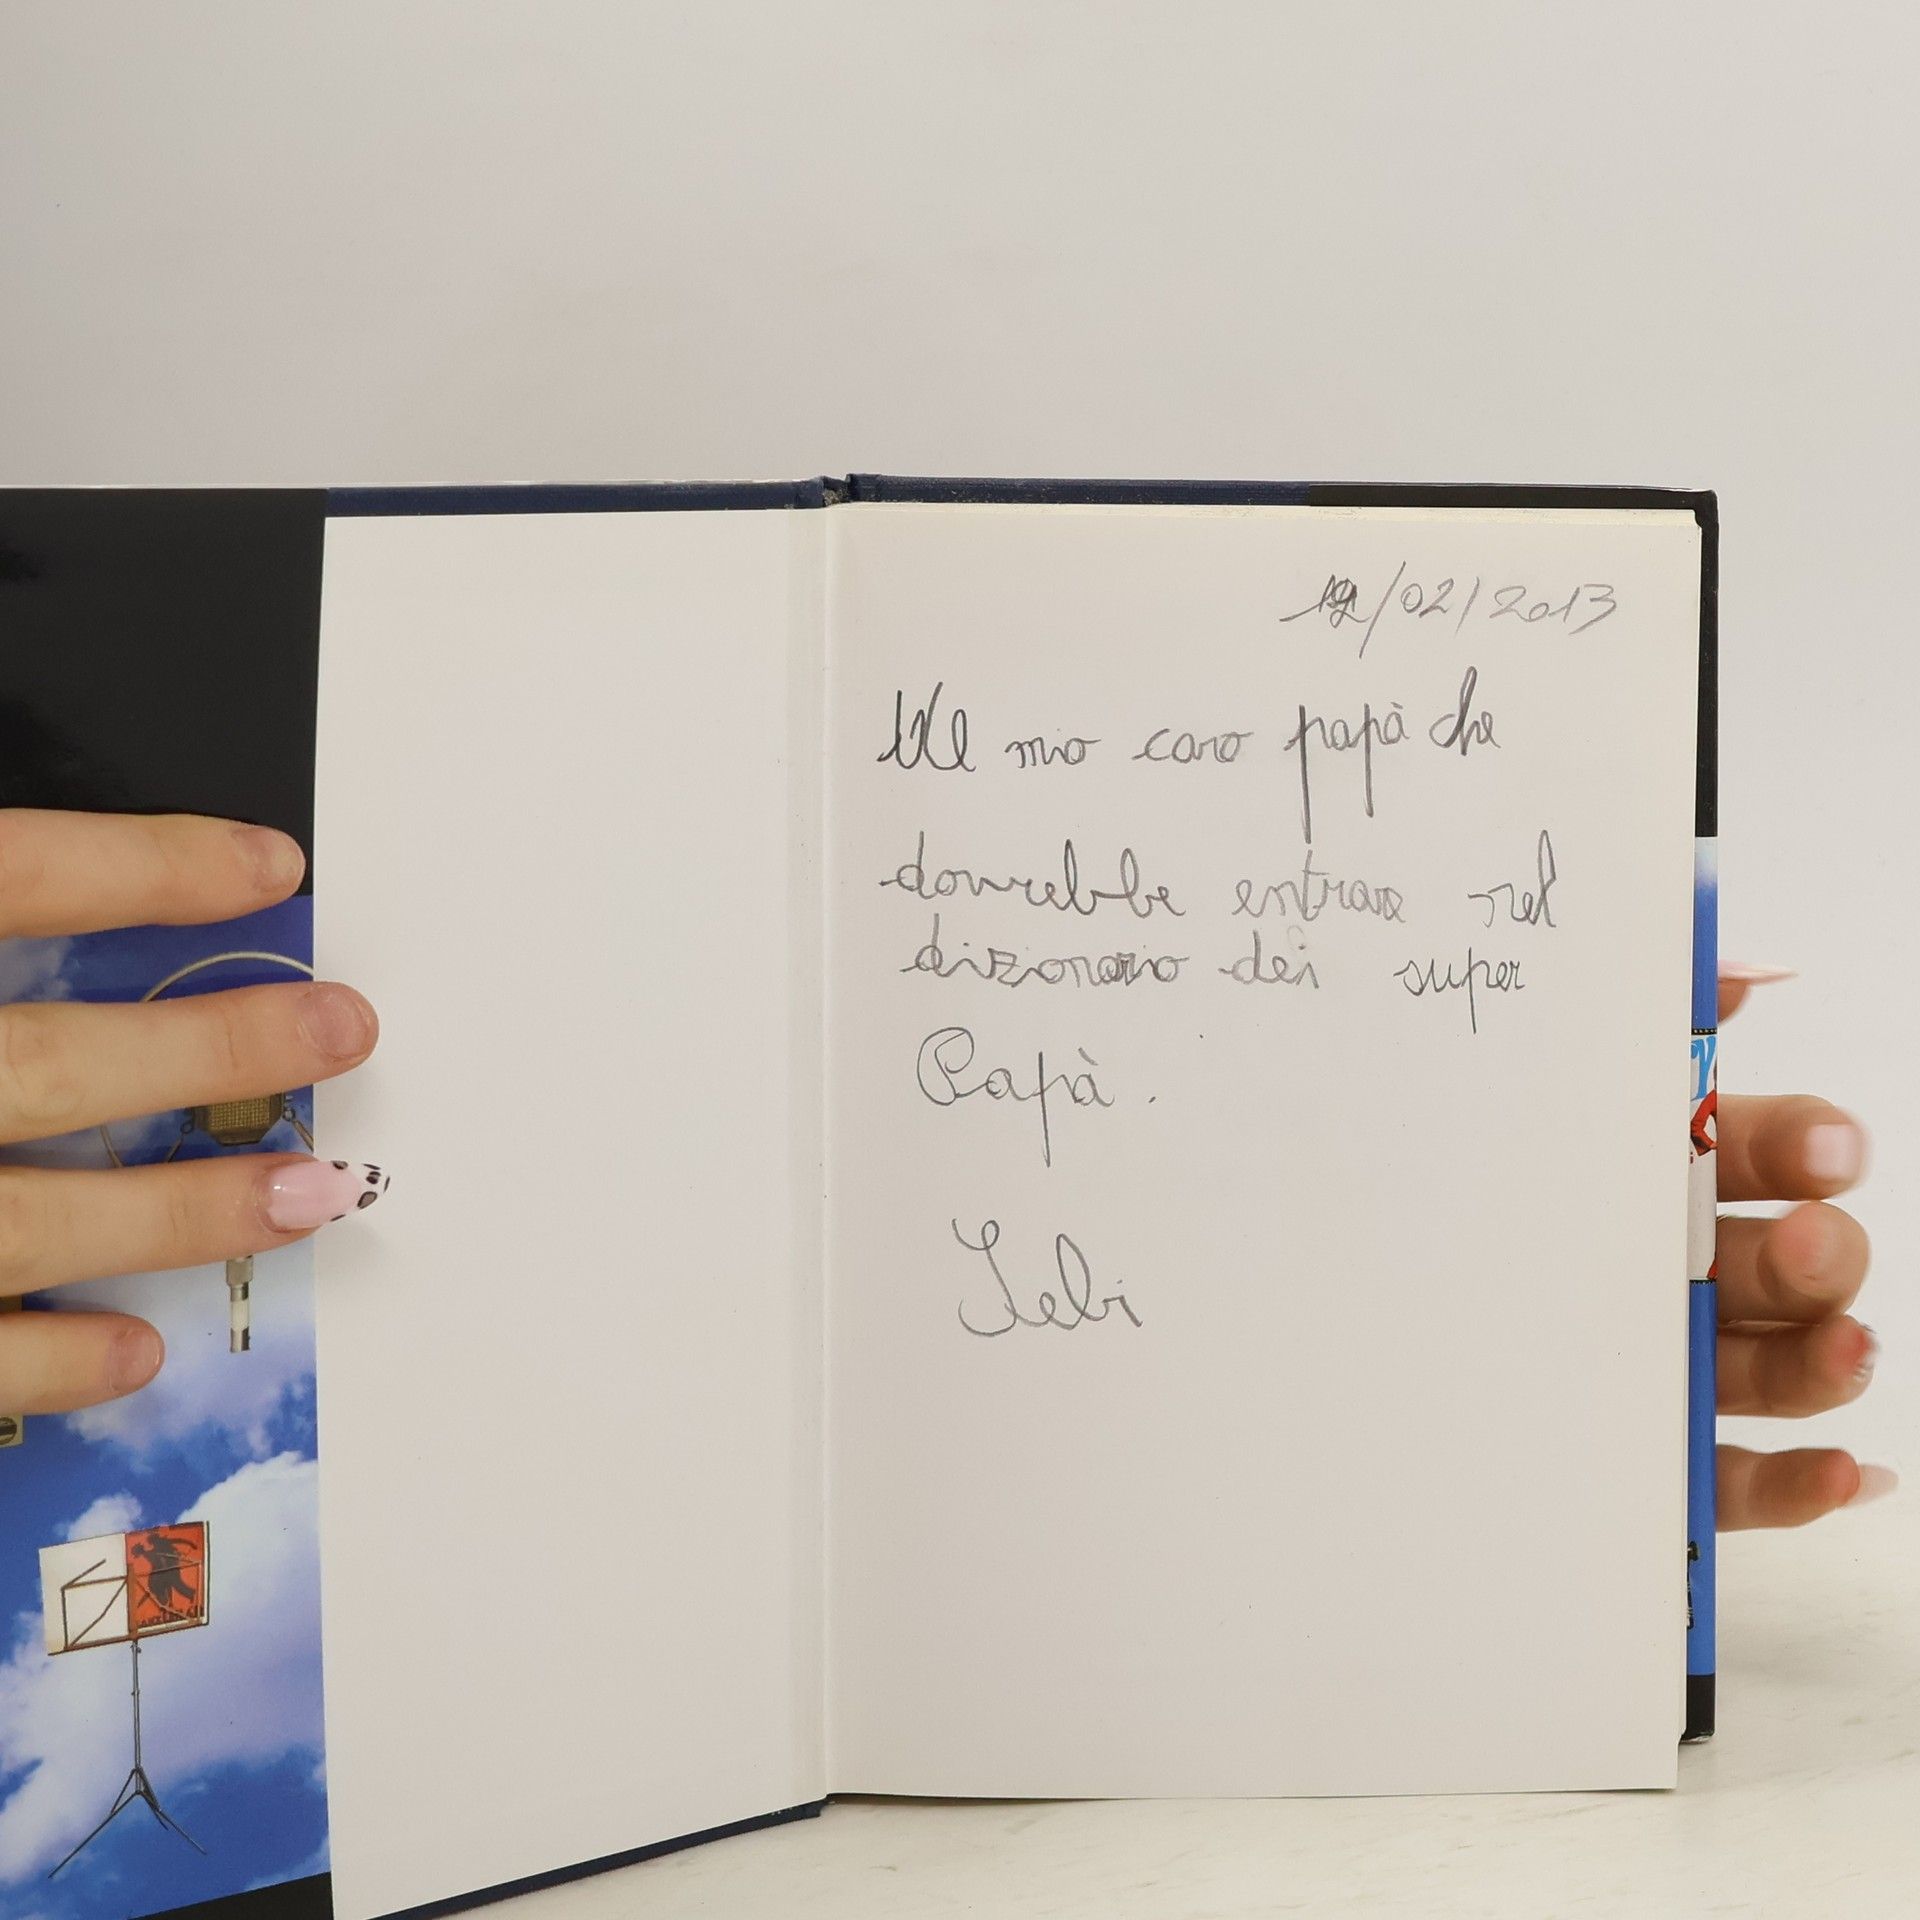 /02/2013
Al mio caro papà che
dovrebbe entrare nel
dizionario dei super
Papà.
Sebi